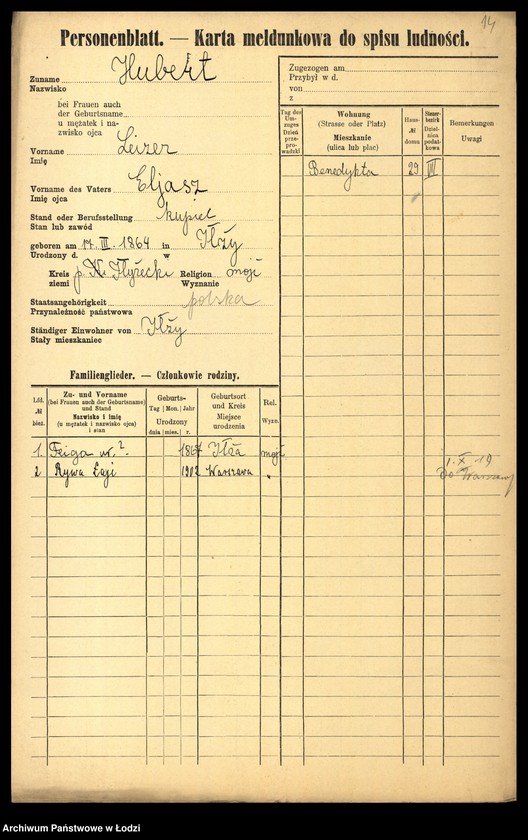 14
Personenblatt. — Karta meldunkowa do spisu ludności.
Zuname Hubert
Nazwisko
bei Frauen auch
der Geburtsname
u mężatek i na-
zwisko ojca
Vorname Leizer
Imię
Vorname des Vaters Eljasz
Imię ojca
Stand oder Berufsstellung kupiec
Stan lub zawód
geboren am 17. III. 1864 in Iłży
Urodzony d. w
Kreis p. Iłżecki Religion mojż
ziemi Wyznanie
Staatsangehörigkeit polska
Przynależność państwowa
Ständiger Einwohner von Iłży
Stały mieszkaniec
Familienglieder. — Członkowie rodziny.
Lfd. № bież.
Zu- und Vorname
(bei Frauen auch der Geburtsname)
und Stand
Nazwisko i imię
(u mężatek i nazwisko ojca)
i stan
Geburts-
Tag Mon. Jahr
Urodzony
dnia mies. r.
Geburtsort
und Kreis
Miejsce
urodzenia
Rel.
Wyzn.
1. Feiga 1867 Iłża mojż
2 Rywa 1902 Warszawa "
Zugezogen am
Przybył w d.
von
z
Tag des
Um-
zuges
Dzień
prze-
prowadzki
Wohnung
(Strasse oder Platz)
Mieszkanie
(ulica lub plac)
Haus-
№
domu
Steuer-
bezirk
Dziel-
nica
podat-
kowa
Bemerkungen
Uwagi
Benedykta 29 VII
1. X 19
do Warszawy
Archiwum Państwowe w Łodzi